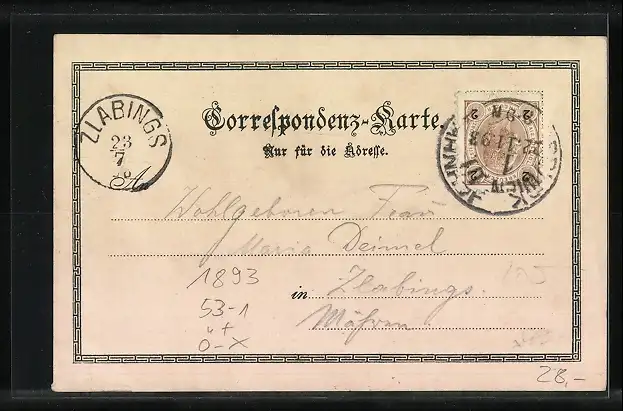 Correspondenz-Karte.
Nur für die Adresse.
ZLABINGS
23
7
A
2 2
WIEN
Wohlgeboren Frau
Maria Deimel
in Zlabings.
Mähren
1893
53-1
0-X
28,-